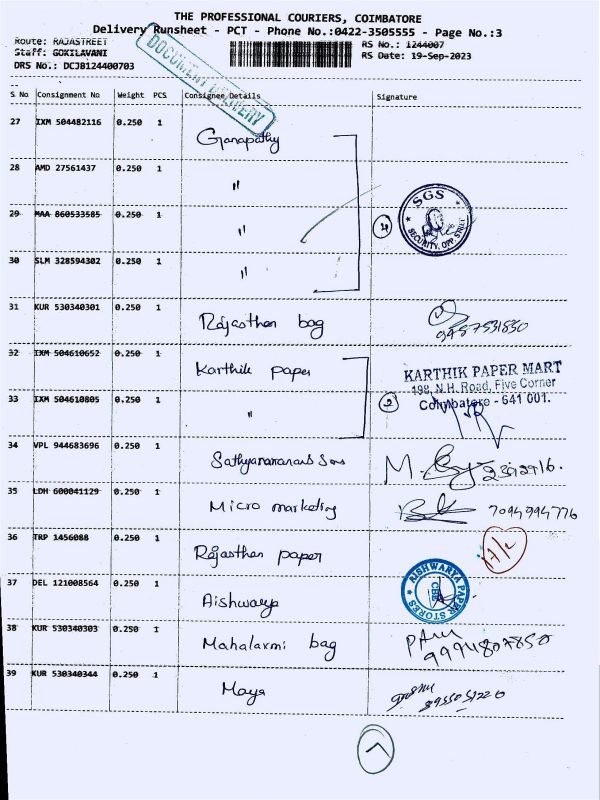 THE PROFESSIONAL COURIERS, COIMBATORE
Delivery Runsheet - PCT - Phone No.:0422-3505555 - Page No.:3
Route: RAJASTREET
RS No.: 1244007
Staff: GOKILAVANI
RS Date: 19-Sep-2023
DRS No.: DCJB124400703
DOCUMENT DELIVERY
S No Consignment No Weight PCS Consignee Details Signature
27 IXM 504482116 0.250 1 Ganapathy
28 AMD 27561437 0.250 1 "
29 MAA 860533585 0.250 1 "
4
SGS
SECURITY, OPP. STREET
30 SLM 328594302 0.250 1 "
31 KUR 530340301 0.250 1 Rajasthan bag
32 IXM 504610652 0.250 1 Karthik paper
KARTHIK PAPER MART
198, N.H. Road, Five Corner
Coimbatore - 641 001.
33 IXM 504610805 0.250 1 "
2
34 VPL 944683696 0.250 1
35 LDH 600041129 0.250 1 Micro marketing 7094994776
36 TRP 1456088 0.250 1 Rajasthan paper
37 DEL 121008564 0.250 1 Aishwarya
AISHWARYA PAPER STORES
CBE
38 KUR 530340303 1 0.250 Mahalaxmi bag
9994807850
39 KUR 530340344 0.250 1 Maya